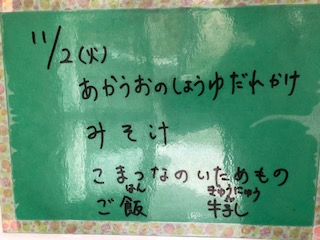 11/2(火)
あかうおのしょうゆだれかけ
みそ汁
こまつなのいためもの
はん ぎゅうにゅう
ご飯 牛乳